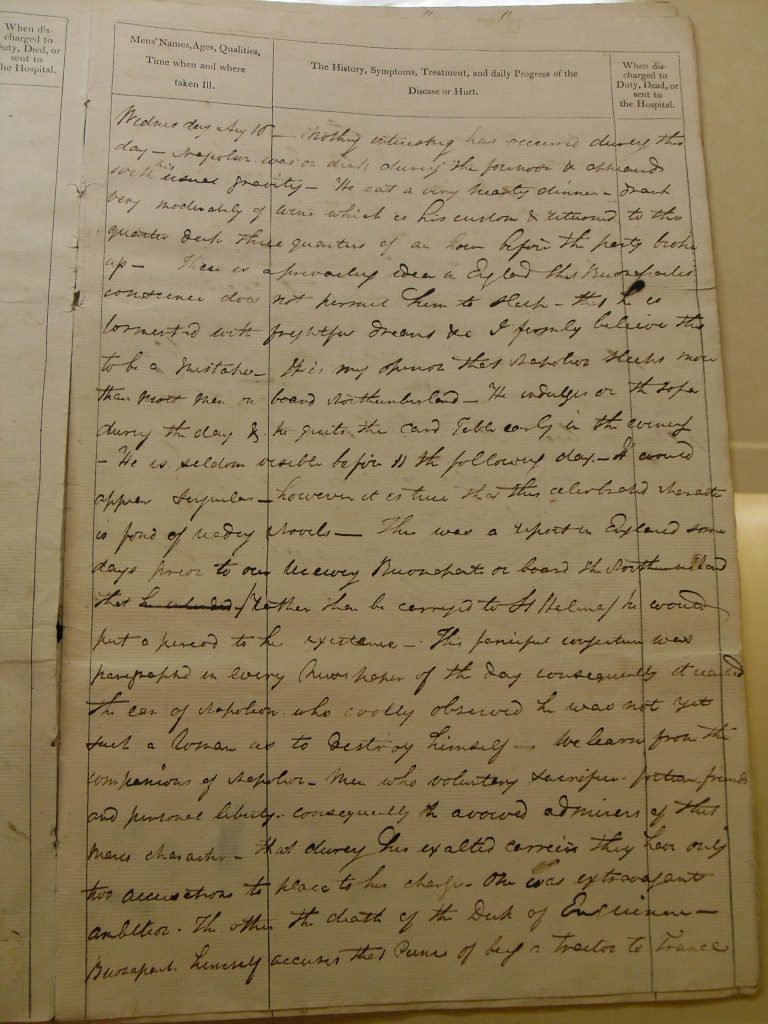 When dis-
charged to
Duty, Died, or
sent to
the Hospital.
Mens' Names, Ages, Qualities,
Time when and where
taken Ill.
The History, Symptoms, Treatment, and daily Progress of the
Disease or Hurt.
When dis-
charged to
Duty, Dead, or
sent to
the Hospital.
Wednesday Aug 16 — Nothing interesting has occurred during this
day — Napoleon was on deck during the forenoon &
with his usual gravity — He eat a very hearty dinner — drank
very moderately of wine which is his custom & returned to the
quarter deck three quarters of an hour before the party broke
up — There is a prevailing idea in England that Buonapartes
conscience does not permit him to sleep — that he is
tormented with frightful dreams &c I firmly believe this
to be a mistake — It is my opinion that Napoleon sleeps more
than most men on board Northumberland — He indulges on the sofa
during the day & he quits the card table early in the evening
— He is seldom visible before 11 the following day — It would
appear singular — however it is true that this celebrated character
is fond of reading Novels — There was a report in England some
days prior to our receiving Buonaparte on board the Northumberland
that he intended (Rather than be carryed to St Helena) he would
put a period to his existence — This fanciful conjecture was
paragraphd in every Newspaper of the day consequently it reached
the ear of Napoleon who coolly observed he was not yet
such a Roman as to destroy himself — We learn from the
companions of Napoleon — Men who voluntary sacrifice fortune, friends
and personal liberty — consequently the avowed admirers of this
mans character — that during his exalted carreir they have only
two accusations to place to his charge — One was extravagant
ambition — The other the death of the Duk of Enguienne —
Buonaparte himself accuses that Prince of being a traitor to France